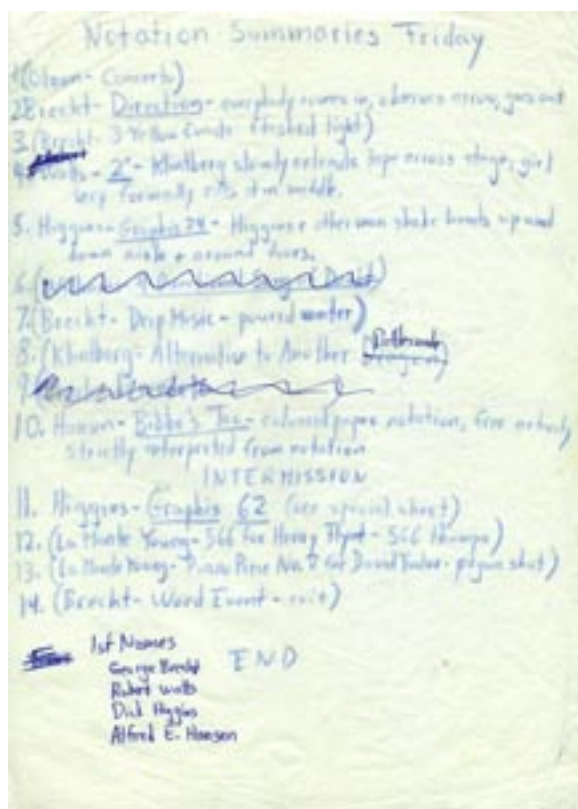 Notation Summaries Friday
1. (Olson - Concerto)
2. Brecht - Direction - everybody comes in, observes arrow, goes out
3. (Brecht - 3 Yellow Events - flashed light)
4. Watts - 2" - Khalberg slowly extends tape across stage, girl
very formally cuts it in middle.
5. Higgins - Graphis 24 - Higgins + other man shake hands up and
down aisle + around
6.
7. (Brecht - Drip Music - poured water)
8. (Khalberg - Alternative to Another
9.
10. Hansen - Bibbe's Tao - colored paper notation, free
strictly interpreted from notation
INTERMISSION
11. Higgins - Graphis 62 (see special sheet)
12. (La Monte Young - 566 for Henry Flynt - 566
13. (La Monte Young - Piano Piece No. for David Tudor -
14. (Brecht - Word Event - exit)
1st Names
END
George Brecht
Robert Watts
Dick Higgins
Alfred E. Hansen